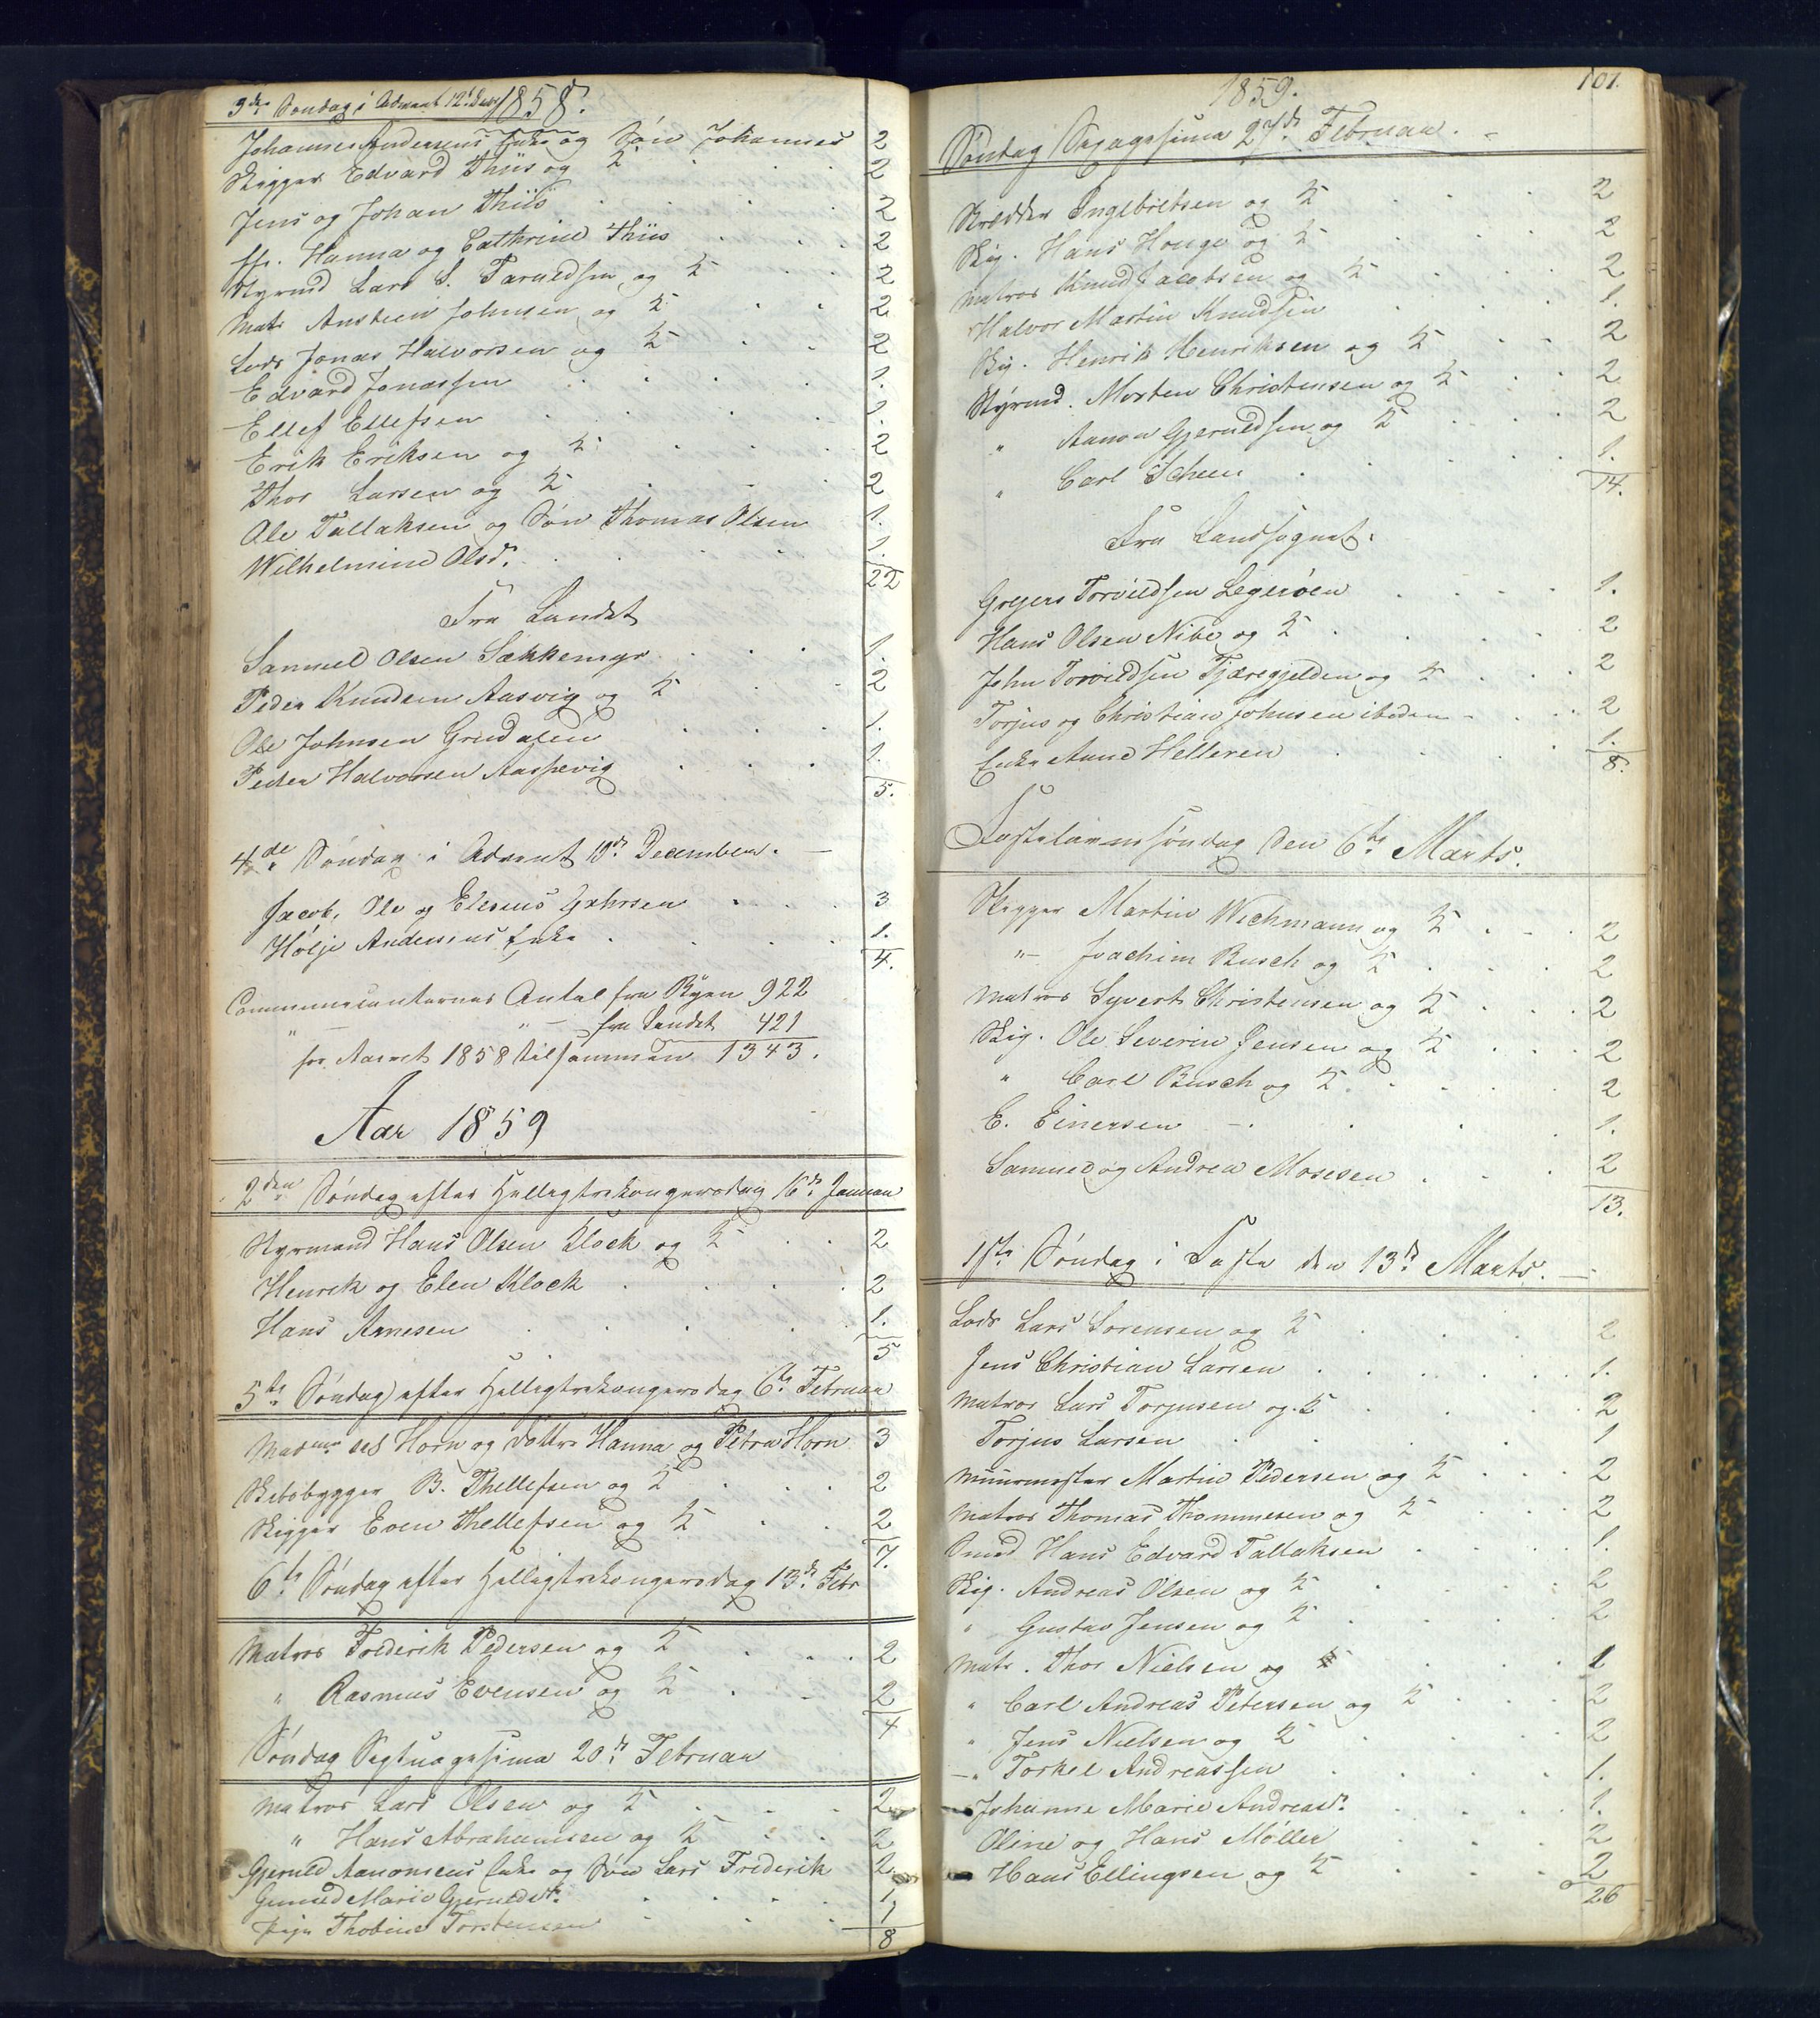 3die Søndag i Advent 12te Decbr 1858.
Johannes Andersens Enke og Søn Johannes 2
Skipper Edvard Thiis og K 2
Jens og Johan Thiis 2
Hanna og Cathrine Thiis 2
Styrmd Lars S. Taraldsen og K 2
Matr Anstein Johnsen og K 2
Lods Jonas Halvorsen og K 2
Edvard Jonassen 1.
Ellef Ellefsen 1.
Erik Eriksen og K 2
Thor Larsen og K 2
Ole Tallaksen og Søn Thomas Olsen 1.
Wilhelmine Olsdr. 1.
22
Fra Landet
Samuel Olsen Sækkemyr 1.
Peder Knudsen Aasvig og K 2
Ole Johnsen Grudalen 1.
Peder Halvorsen Aaspevig 1.
5.
4de Søndag i Advent 19de December.
Jacob, Ole og Eleseus Gahrsen 3
Hølje Andersens Enke 1.
4.
Communicanternes Antal fra Byen 922
" — " — fra Landet 421
for Aaret 1858 tilsammen 1343.
Aar 1859
2den Søndag efter Helligtrekongersdag 16de Januar
Styrmand Hans Olsen Klock og K 2
Henrik og Elen Klock 2
Hans Arnesen 1.
5
5te Søndag efter Helligtrekongersdag 6te Februar
Madme sal Horn og Døttre Hanna og Petra Horn 3
Skibsbygger B. Thellefsen og K 2
Skipper Even Thellefsen og K 2
7.
6te Søndag efter Helligtrekongersdag 13de Febr
Matros Frederik Pedersen og K 2
" Rasmus Evensen og K 2
4
Søndag Septuagesima 20de Februar
Matros Lars Olsen og K 2
" Hans Abrahamsen og K 2
Gjeruld Aanonsens Enke og Søn Lars Frederik 2
Gunild Marie Gjerulds. 1
Pige Thobine Torstensen 1
8
1859. 101.
Søndag Sexagesima 27de Februar.
Skrædder Ingebretsen og K 2
Skip. Hans Houge og K 2
Matros Knud Jacobsen og K 2
Halvor Martin Knudsen 1.
Skip. Henrik Henriksen og K 2
Styrmd. Morten Christensen og K 2
" Aanon Gjeruldsen og K 2
" Carl Scheen 1.
14.
Fra Landsognet.
Gregers Torvildsen Legerøen 1.
Hans Olsen Nibe og K 2
John Torvildsen Tjæregjelden og K 2
Torjus og Christian Johnsen ibidem 2
Enke Anne Helleren 1.
8.
Fastelavnssøndag den 6te Marts.
Skipper Martin Wichmann og K 2
" Joachim Busch og K 2
Matros Syvert Christensen og K 2
Skip. Ole Severin Jensen og K 2
" Carl Busch og K 2
E. Einersen 1.
Samuel og Andrea Mosesen 2
13.
1ste Søndag i Faste den 13de Marts.
Lods Lars Sørensen og K 2
Jens Christian Larsen 1.
Matros Lars Torjusen og K 2
Torjus Larsen 1
Muurmester Martin Pedersen og K 2
Matros Thomas Thommesen og K 2
Smed Hans Edvard Tallaksen 1.
Skip. Andreas Olsen og K 2
" Gustav Jensen og K 2
Matr. Thor Nielsen og K 1
" Carl Andreas Petersen og K 2
" Jens Nielsen og K 2
" Torkel Andreassen 1.
Johanne Marie Andreasdr. 1.
Oline og Hans Møller 2
Hans Ellingsen og K 2
26